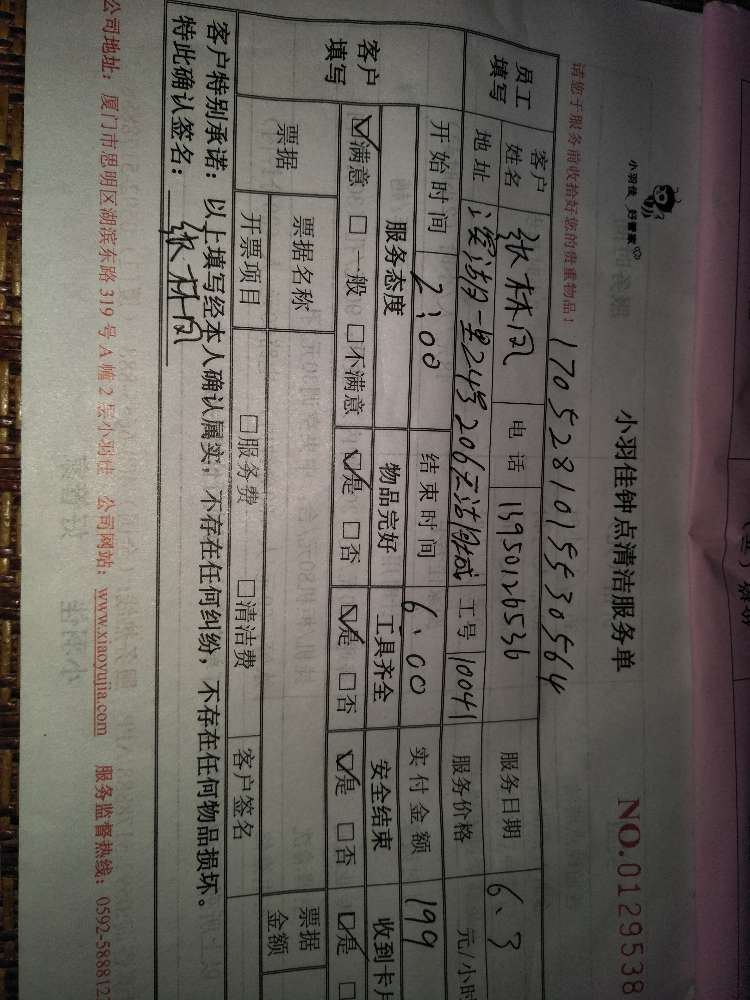 小羽佳 好管家
小羽佳钟点清洁服务单
NO.0129538
请您于服务前收拾好您的贵重物品!
1705281015530564
员工填写
客户姓名 张林凤 电话 13950126536 服务日期 6.3
地址 24号206 工号 10041 服务价格 元/小时
客户填写
开始时间 2:00 结束时间 6:00 实付金额 199
服务态度 物品完好 工具齐全 安全结束 收到卡片
☑满意 □一般 □不满意 ☑是 □否 ☑是 □否 ☑是 □否 ☑是 □
票据 票据名称 票据金额
开票项目 □服务费 □清洁费 客户签名
客户特别承诺:以上填写经本人确认属实,不存在任何纠纷,不存在任何物品损坏。
特此确认签名: 张林凤
公司地址:厦门市思明区湖滨东路319号A幢2层小羽佳 公司网站:www.xiaoyujia.com 服务监督热线:0592-588812